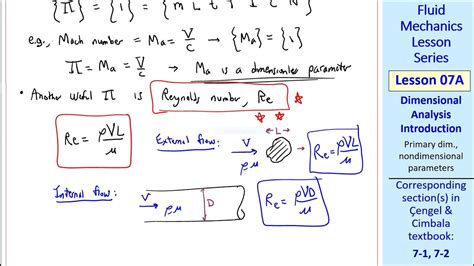 {Π} = {m^0 L^0 t^0 T^0 I^0 C^0 N^0} = {1}
e.g., Mach number = Ma = V/c → {Ma} = {1}
Π = Ma = V/c → Ma is a dimensionless parameter
• Another useful Π is Reynolds number, Re
Re = ρVL/μ
External flow: V ρ μ L → Re = ρVL/μ
Internal flow: V ρ μ D Re = ρVD/μ
Fluid
Mechanics
Lesson
Series
Lesson 07A
Dimensional
Analysis
Introduction
Primary dim.,
nondimensional
parameters
Corresponding
section(s) in
Çengel &
Cimbala
textbook:
7-1, 7-2